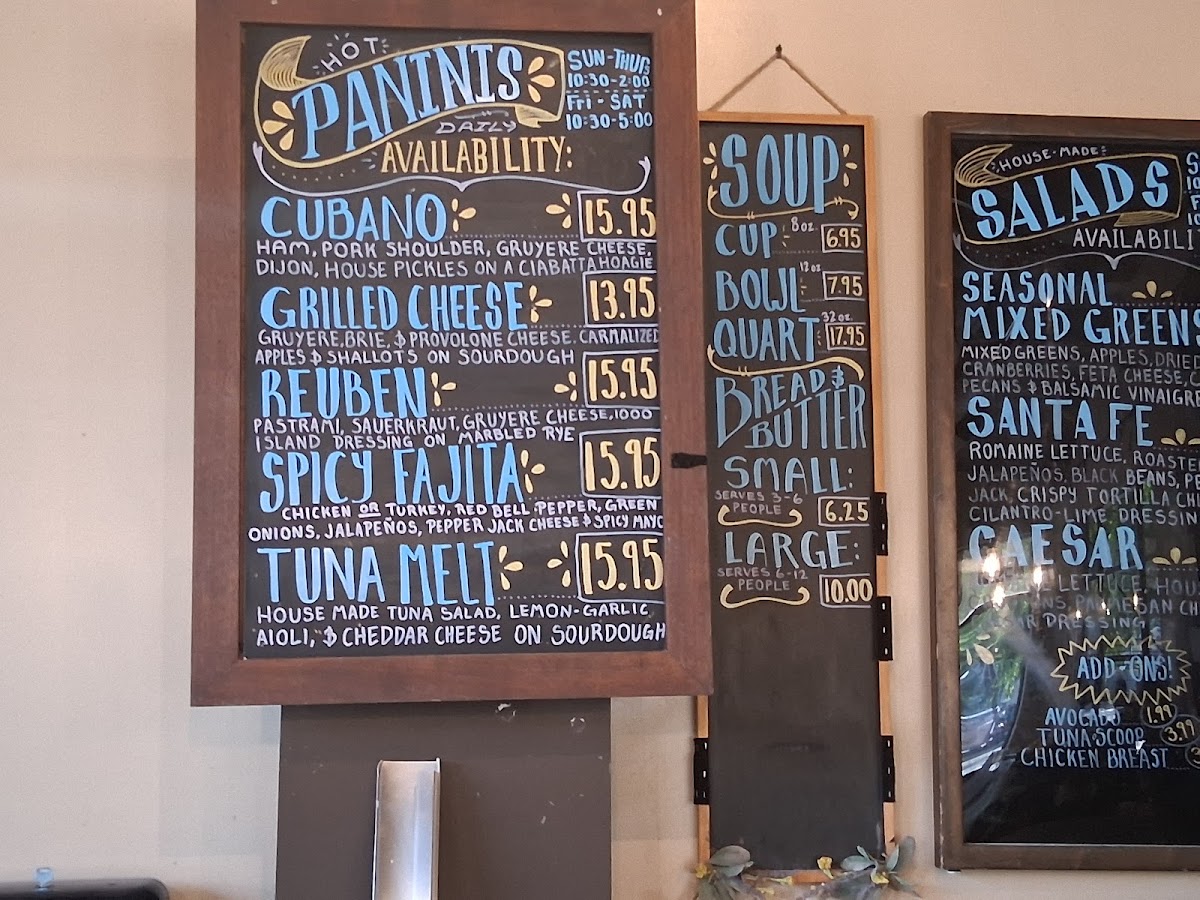 HOT
PANINIS
DAILY
AVAILABILITY:
SUN-THU
10:30-2:00
FRI - SAT
10:30-5:00
CUBANO 15.95
HAM, PORK SHOULDER, GRUYERE CHEESE,
DIJON, HOUSE PICKLES ON A CIABATTA HOAGIE
GRILLED CHEESE 13.95
GRUYERE, BRIE, & PROVOLONE CHEESE, CARMALIZED
APPLES & SHALLOTS ON SOURDOUGH
REUBEN 15.95
PASTRAMI, SAUERKRAUT, GRUYERE CHEESE, 1000
ISLAND DRESSING ON MARBLED RYE
SPICY FAJITA 15.95
CHICKEN OR TURKEY, RED BELL PEPPER, GREEN
ONIONS, JALAPEÑOS, PEPPER JACK CHEESE & SPICY MAYO
TUNA MELT 15.95
HOUSE MADE TUNA SALAD, LEMON-GARLIC
AIOLI, & CHEDDAR CHEESE ON SOURDOUGH
SOUP
CUP 8oz 6.95
BOWL 12oz 7.95
QUART 32oz. 17.95
BREAD &
BUTTER
SMALL:
SERVES 3-6
PEOPLE 6.25
LARGE:
SERVES 6-12
PEOPLE 10.00
HOUSE-MADE
SALADS
AVAILABILI
SEASONAL
MIXED GREENS
MIXED GREENS, APPLES, DRIED
CRANBERRIES, FETA CHEESE,
PECANS & BALSAMIC VINAIGRE
SANTA FE
ROMAINE LETTUCE, ROASTE
JALAPEÑOS, BLACK BEANS, PE
JACK, CRISPY TORTILLA CHI
CILANTRO-LIME DRESSIN
CAESAR
LETTUCE, HOU
PARMESAN CH
DRESSING
ADD-ONS!
AVOCADO 1.99
TUNA SCOOP 3.99
CHICKEN BREAST